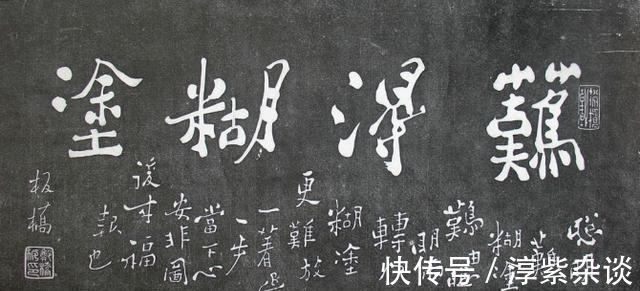 難得糊塗
聰明
難
糊塗
難由
明
轉
糊塗
更難放
一著退
一步
當下心
安非圖
後来福
報也
板橋
快传号/淳紫杂谈